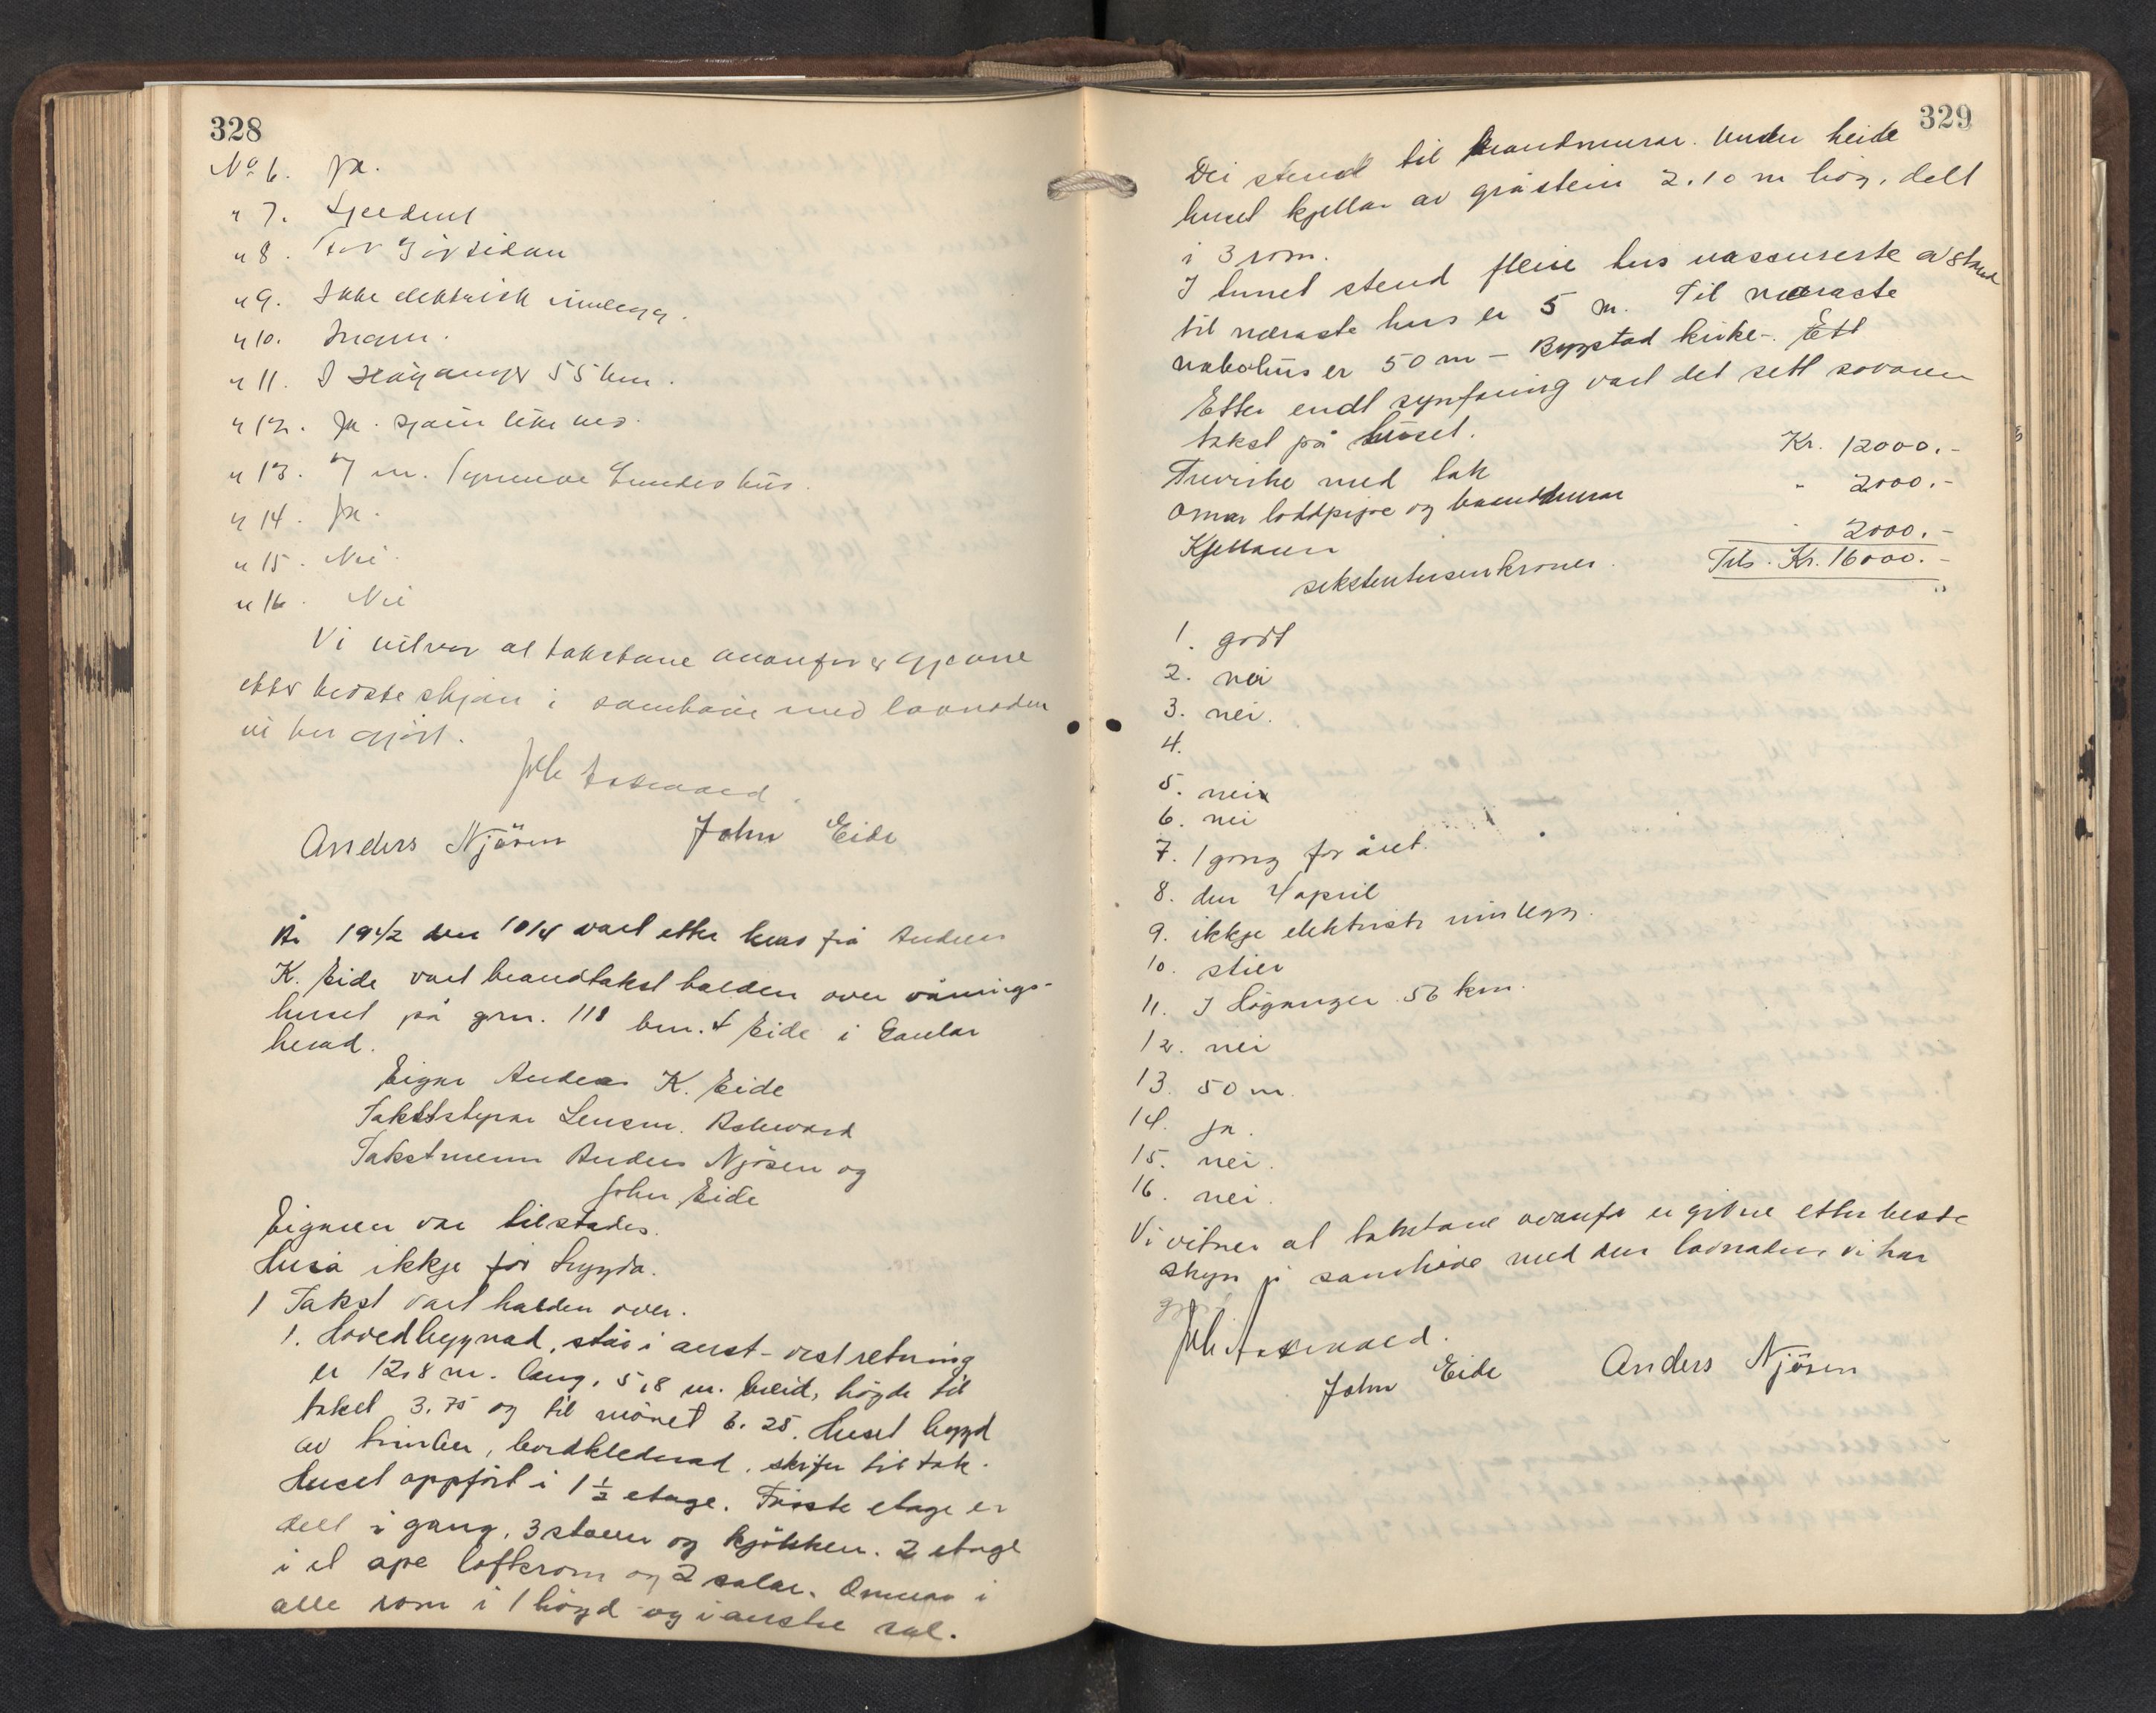 328
No 6. Ja.
" 7. Sjeldent
" 8.
" 9. Ikke elektrisk innlegg.
" 10. Ingen.
" 11. I Høyanger 55 km.
" 12. Ja. sjøen like ved.
" 13. 7 m. Synneve Lundes hus.
" 14. Ja.
" 15. Nei.
" 16. Nei
Vi vitner at takstane ovanfor er gjevne
etter beste skjøn i samhøve med lovnaden
vi her gjort.
Anders Njøsen John Eide
År 1942 den 10/4 vart etter krav frå Andreas
K. Eide vart brandtakst halden over vånings-
huset på gnr. 118 bnr. 4 Eide i Gaular
herad.
Eigar Andreas K. Eide
Takststyrar Lensm. Askevold
Takstmenn Anders Njøsen og
John Eide
Eigaren var tilstades.
Husa ikkje før trygda.
1 Takst vart halden over.
1. Hovedbygnad, står i aust-vest retning
er 12,8 m. lang, 5,8 m. breid, høgde til
taket 3.75 og til mønet 6.25. Huset bygd
av timber, bordklednad, skifer til tak.
Huset oppført i 1½ etage. Første etage er
delt i gang, 3 stover og kjøkken. 2 etage
i et ope loftsrom og 2 salar. Omnar i
alle rom i 1 høgd og i austre sal.
329
Dei stend til brandmurar. Under heile
huset kjellar av gråstein 2.10 m høg, delt
i 3 rom.
I tunet stend fleire hus avstand
til næraste hus er 5 m. Til næraste
nabohus er 50 m - Bygstad kirke-. Ett
Etter endt synfaring vart det sett sovoren
takst på huset.
Trevirke med tak Kr. 12000.-
Omnar loddpipe og brandmurar " 2000.-
Kjellaren " 2000.-
sekstentusenkroner. Tils. Kr. 16000.-
1. godt
2. nei
3. nei.
4.
5. nei
6. nei
7. 1 gong for året.
8. den 4 april
9. ikkje elektrisk innlegg.
10. stier
11. I Høyanger 56 km.
12. nei
13. 50 m.
14. ja.
15. nei.
16. nei.
Vi vitner at takstane ovanfor er gitne etter beste
skyn i samhøve med den lovnaden vi har
John Eide Anders Njøsen